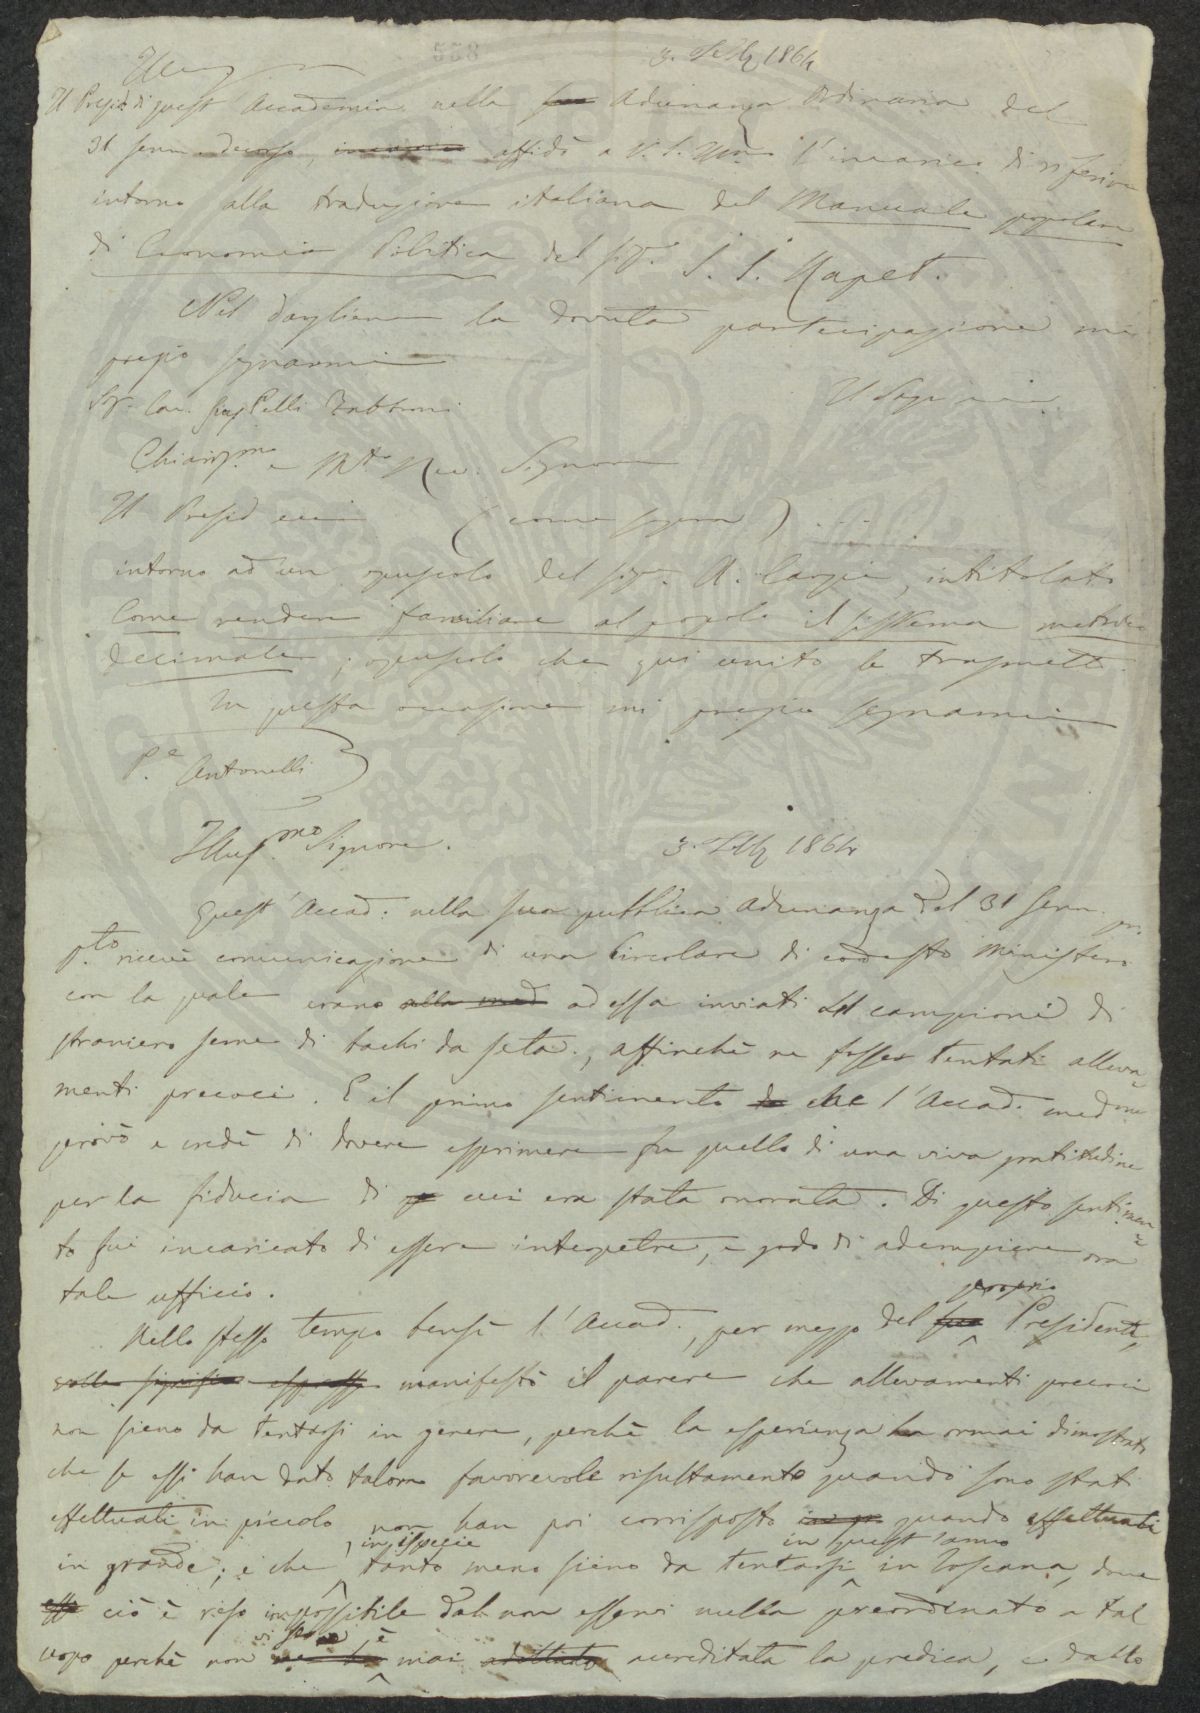 558
3. Febb 1864
Il Presid di quest' Accademia nella sua Adunanza Ordinaria del
31 Genn. decorso, affidò a V. S. Illma l'incarico di riferire
intorno alla traduzione italiana del Manuale popolare
di Economia Politica del sigr. J. J. Rapet.
Nel dargliene la dovuta partecipazione mi
pregio segnarmi
Sigr. Cav. Pelli Fabbroni
Chiarissmo e Mto Rev. Signore
Il Presid ecc (come sopra)
intorno ad un opuscolo del sigr. A. intitolato
Come rendere familiare al popolo il sistema metrico
decimale; opuscolo che qui unito le trasmett
In questa occasione mi pregio segnarmi
Pe. Antonelli
Illussmo Signore. 3. Febb 1864
Quest' Accad: nella sua pubblica Adunanza del 31 Genn. pr.
pto ricevè comunicazione di una Circolare di codesto Ministero
con la quale erano alla med ad essa inviati campioni di
straniero seme di bachi da seta, affinchè ne fosser tentati alleva-
menti precoci. E il primo sentimento che l'Accad. medma
provò e credè di dovere esprimere fu quello di una viva gratitudine
per la fiducia di cui era stata onorata. Di questo sentimen-
to fui incaricato di essere interpetre, e godo di adempiere ora
tale ufficio.
proprio
Nello stesso tempo bensì l'Accad., per mezzo del suo Presidente,
manifestò il parere che allevamenti precoci
non sieno da tentarsi in genere, perchè la esperienza ha ormai dimostrato
che se essi han dato talora favorevole risultamento quando sono stati
effettuati in piccolo, non han poi corrisposto quando effettuati
in ispecie in quest'anno
in grande; e che tanto meno sieno da tentarsi in Toscana, dove
ciò è reso impossibile dal non esservi nulla preordinato a tal
vi si è
uopo perchè non mai accreditata la predica, e dallo